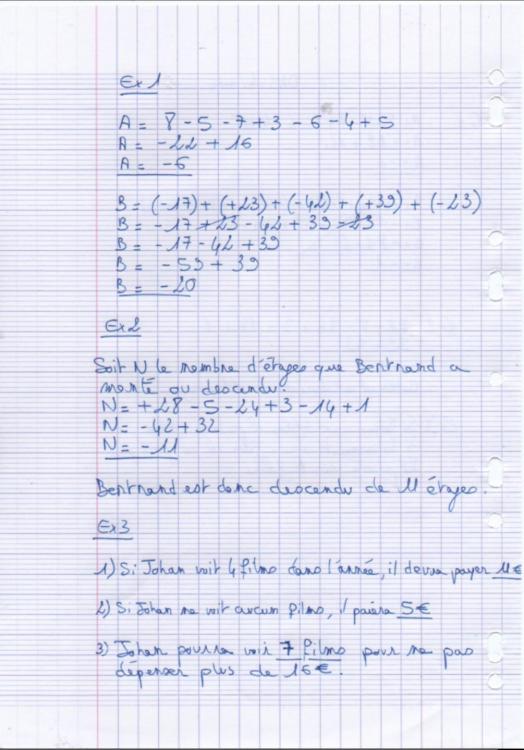 Ex 1
A = 8 - 5 - 7 + 3 - 6 - 4 + 5
A = -22 + 16
A = -6
B = (-17) + (+23) + (-42) + (+39) + (-23)
B = -17 +23 - 42 + 39 -23
B = -17 - 42 + 39
B = -59 + 39
B = -20
Ex 2
Soit N le nombre d'étages que Bertrand a
monté ou descendu.
N = +28 - 5 - 24 + 3 - 14 + 1
N = -42 + 32
N = -11
Bertrand est donc descendu de 11 étages.
Ex 3
1) Si Johan voit 4 films dans l'année, il devra payer 11€
2) Si Johan ne voit aucun films, il paiera 5€
3) Johan pourra voir 7 films pour ne pas
dépenser plus de 16€.